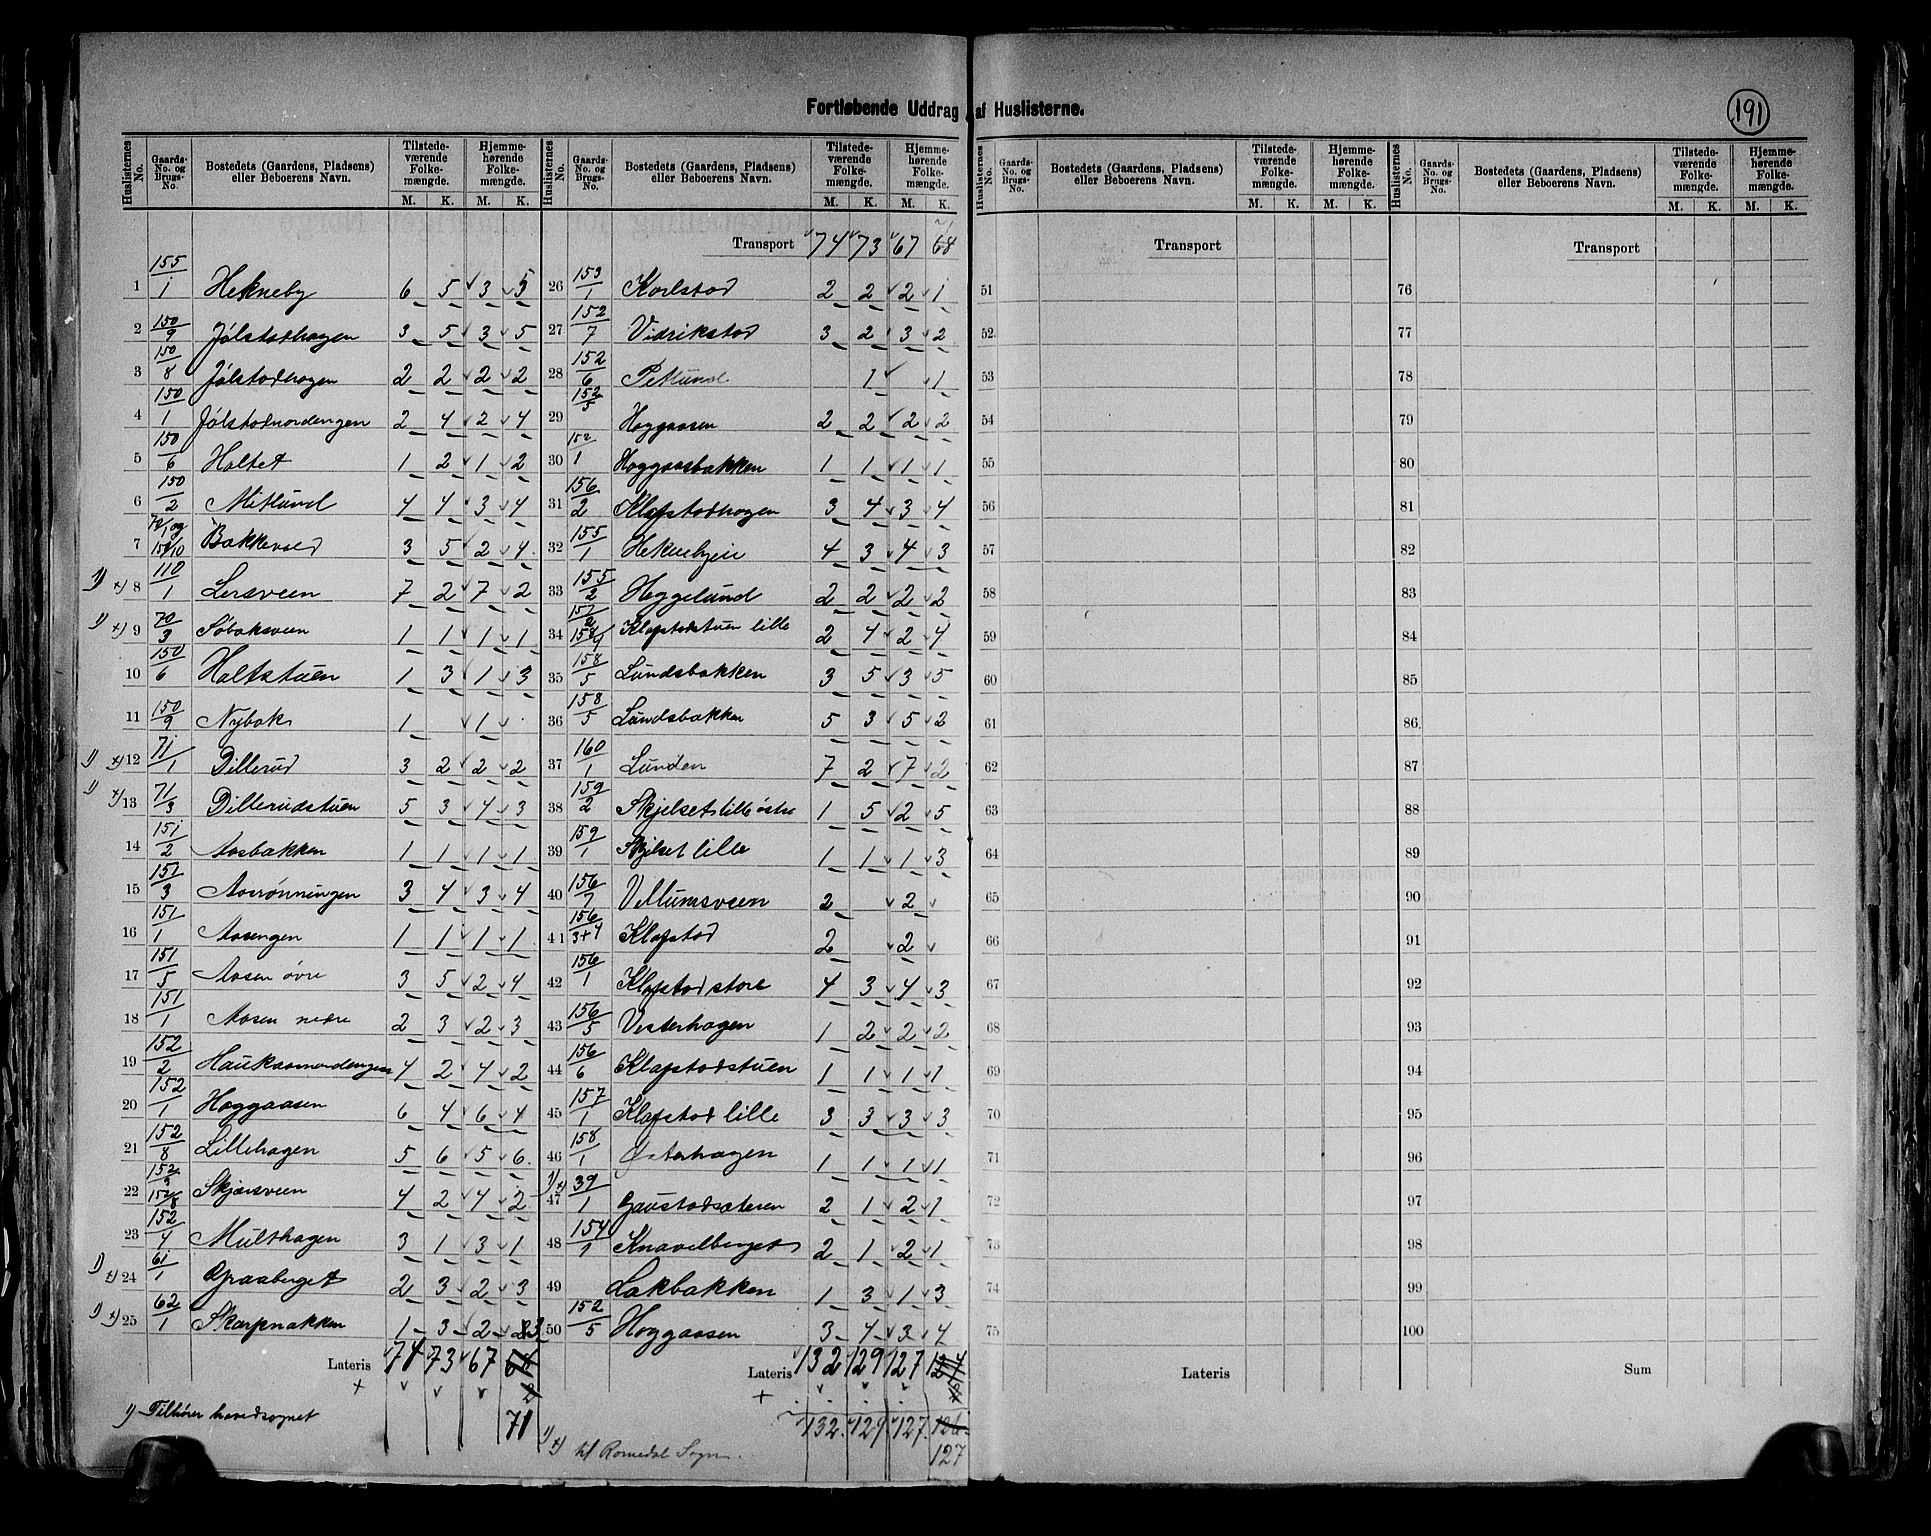 Fortløbende Uddrag af Huslisterne.
191
Huslisternes No. | Gaards-No. og Brugs-No. | Bostedets (Gaardens, Pladsens) eller Beboerens Navn. | Tilstedeværende Folkemængde. M. K. | Hjemmehørende Folkemængde. M. K.
1 155/1 Hekneby 6 5 3 5
2 150/9 Jølstadhagen 3 5 3 5
3 150/8 Jølstadhagen 2 2 2 2
4 150/1 Jølstadnordengen 2 4 2 4
5 150/6 Holtet 1 2 1 2
6 150/2 Mitlund 4 4 3 4
7 Bakkevold 3 5 2 4
1) +) 8 110/1 Lersveen 7 2 7 2
1) +) 9 70/3 Søbaksveen 1 1 1 1
10 150/6 Holtstuen 1 3 1 3
11 150/9 Nybak 1 1
1) +) 12 71/1 Dillerud 3 2 2 2
1) +) 13 71/3 Dillerudstuen 5 3 4 3
14 151/2 Aasbakken 1 1 1 1
15 151/3 Aasrønningen 3 4 3 4
16 151/1 Aasengen 1 1 1 1
17 151/5 Aasen øvre 3 5 2 4
18 151/1 Aasen nedre 2 3 2 3
19 152/2 Haukaasnordengen 4 2 4 2
20 152/1 Hoggaasen 6 4 6 4
21 152/8 Lillehagen 5 6 5 6
22 Skjærsveen 4 2 4 2
23 152/4 Multhagen 3 1 3 1
1) +) 24 61/1 Graaberget 2 3 2 3
1) +) 25 62/1 Skarpnakken 1 3 2 3
Lateris 74 73 67
71
1) Tilhører hovedsognet
Transport 74 73 67 68
26 153/1 Karlstad 2 2 2 1
27 152/7 Vidrikstad 3 2 3 2
28 152/6 Petlund 1 1
29 152/5 Hoggaasen 2 2 2 2
30 152/1 Hoggaasbakken 1 1 1 1
31 156/2 Klafstadhagen 3 4 3 4
32 155/1 Heknebyeie 4 3 4 3
33 155/2 Heggelund 2 2 2 2
34 Klafstadstuen lille 2 4 2 4
35 158/5 Lundsbakken 3 5 3 5
36 158/5 Lundsbakken 5 3 5 2
37 160/1 Lunden 7 2 7 2
38 159/2 Skjelset lille østre 1 5 2 5
39 159/1 Skjelset lille 1 1 1 3
40 156/7 Vellumsveen 2 2
41 156/3+4 Klafstad 2 2
42 156/1 Klafstad store 4 3 4 3
43 156/5 Vesterhagen 1 2 2 2
44 156/6 Klafstadstuen 1 1 1 1
45 157/1 Klafstad lille 3 3 3 3
46 158/1 Østerhagen 1 1 1 1
1) +) 47 39/1 Gaustadsæteren 2 1 2 1
48 154/1 Knavelberget 2 1 2 1
49 Lakbakken 1 3 1 3
50 152/5 Hoggaasen 3 4 3 4
Lateris 132 129 127
132. 129. 127. 126.
127
1) +) til Romedal Sogn.
Huslisternes No. | Gaards-No. og Brugs-No. | Bostedets (Gaardens, Pladsens) eller Beboerens Navn. | Tilstedeværende Folkemængde. M. K. | Hjemmehørende Folkemængde. M. K.
Transport
51
52.
53
54
55
56
57
58
59
60
61
62
63
64
65
66
67
68
69
70
71
72
73
74
75
Lateris
Transport
76
77
78
79
80
81
82
83
84
85
86.
87
88
89
90
91
92
93
94
95
96
97
98
99
100
Sum